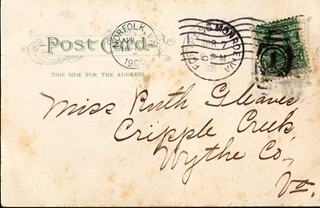 Post Card.
THIS SIDE FOR THE ADDRESS.
NORFOLK, VA.
Miss Ruth Gleaves
Cripple Creek,
Wythe Co.,
Va.